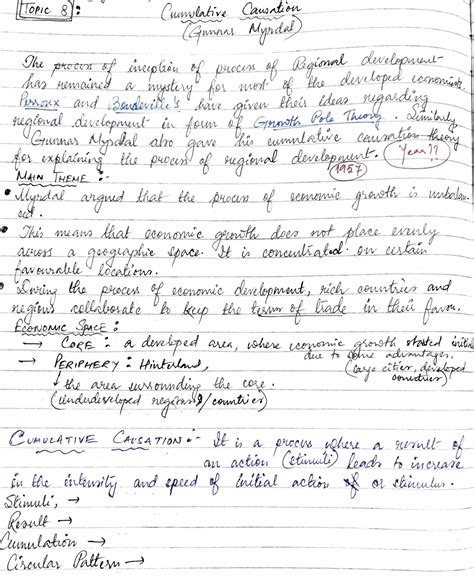 TOPIC 8 :
Cumulative Causation
(Gunnar Myrdal)
The process of inception of process of Regional development
has remained a mystery for most of the developed economists
Perroux and Boudeville's have given their ideas regarding
regional development in form of Growth Pole Theory. Similarly
Gunnar Myrdal also gave his cumulative causation theory
for explaining the process of regional development. Year??
1957
MAIN THEME :-
• Myrdal argued that the process of economic growth is unbalan-
ced.
• This means that economic growth does not place evenly
across a geographic space. It is concentrated on certain
favourable locations.
• During the process of economic development, rich countries and
regions collaborate to keep the terms of trade in their favou.
ECONOMIC SPACE :
→ CORE : a developed area, where economic growth started initia
due to some advantages.
(large cities, developed
countries)
→ PERIPHERY : Hinterland,
↓ the area surrounding the core.
(underdeveloped regions/countries)
CUMULATIVE CAUSATION :- It is a process where a result of
an action (stimuli) leads to increase
in the intensity and speed of initial action or stimulus.
Stimuli, →
Result →
Cumulation →
Circular Pattern →